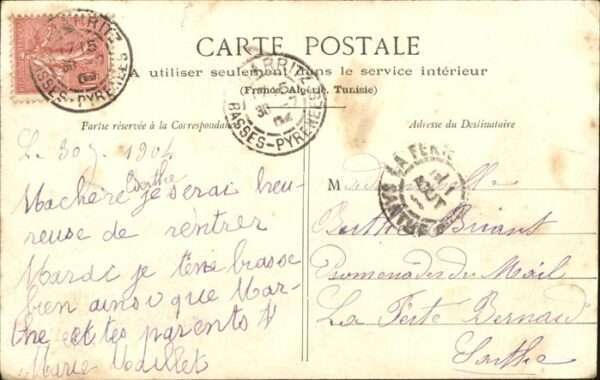 CARTE POSTALE
A utiliser seulement dans le service intérieur
(France, Algérie, Tunisie)
Partie réservée à la Correspondance
Adresse du Destinataire
BIARRITZ
BASSES-PYRENEES
BIARRITZ
BASSES-PYRENEES
LA FERTE
SARTHE
Le 30 7 1904
Ma chère Berthe je serai heu-
reuse de rentrer
Mardi je t'enbrasse
bien ainsi que Mar-
the et tes parents
Marie Maillet
Mademoiselle
Berthe Briant
Promenades du Mail
La Ferte Bernard
Sarthe